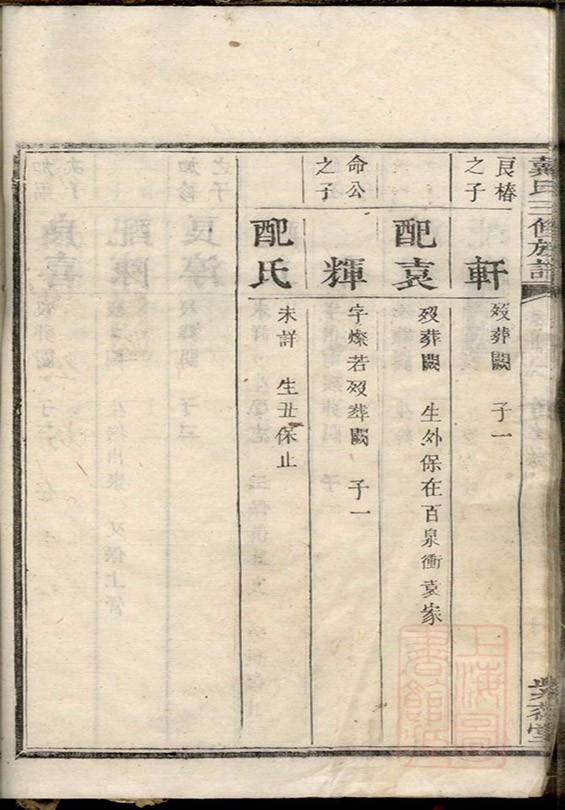 戴氏三修族譜
良椿之子
軒
歿葬闕 子一
配袁
歿葬闕 生外保在百泉衝袁家
命公之子
輝
字燦若歿葬闕 子一
配氏
未詳 生丑保止
上海圖書館藏